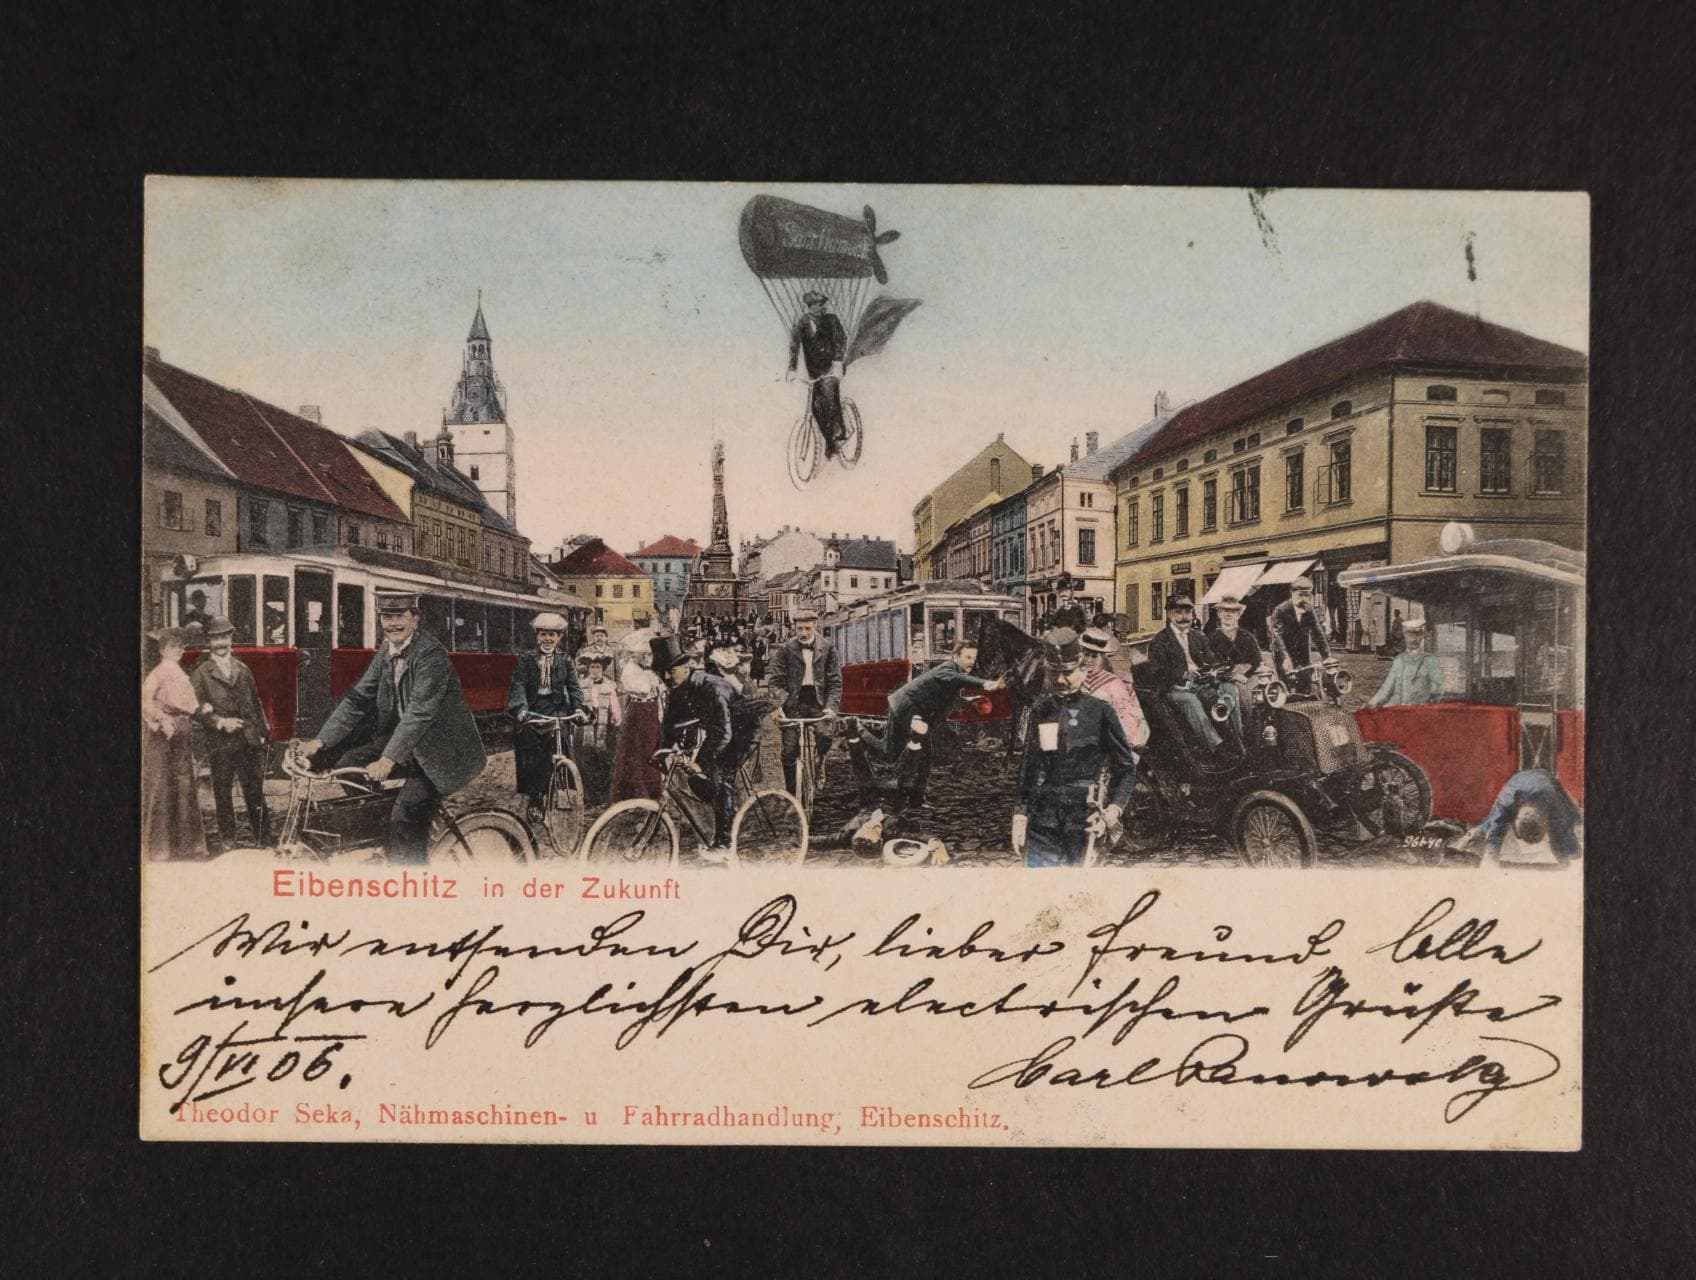 Eibenschitz in der Zukunft
Wir entsenden Dir, lieber Freund, Alle
unsere herzlichsten electrischen Grüße
9/VI 06.
Carl
Theodor Seka, Nähmaschinen- u Fahrradhandlung, Eibenschitz.